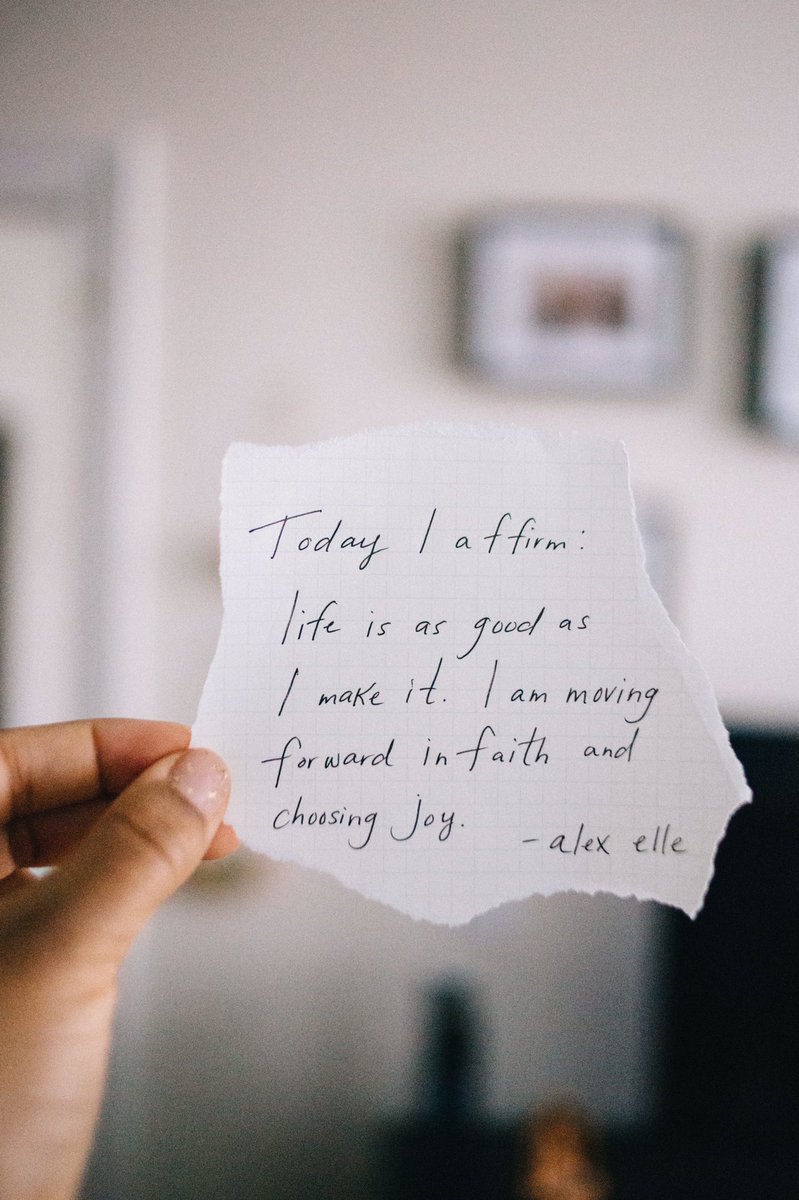 Today I affirm:
life is as good as
I make it. I am moving
forward in faith and
choosing joy.
- alex elle